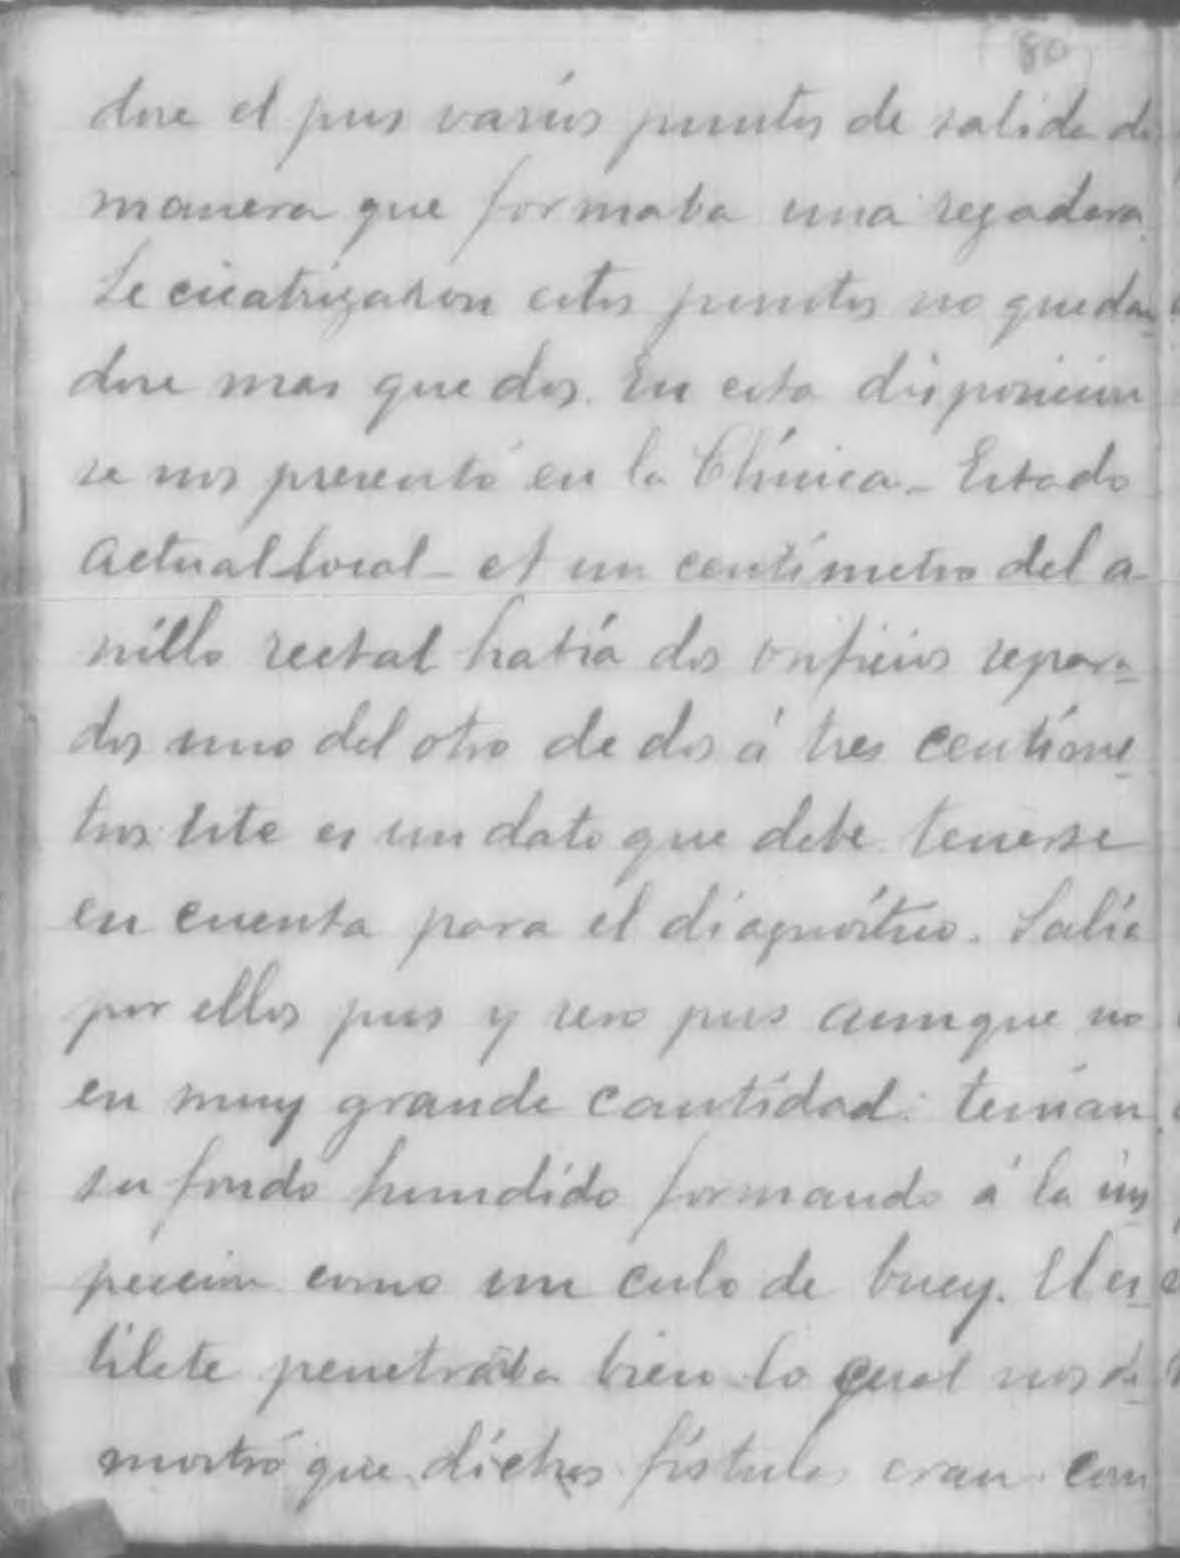 (80)
dose el pus varios puntos de salida de
manera que formaba una regadera.
Se cicatrizaron estos puntos no quedan-
dose mas que dos. En esta disposicion
se nos presentó en la Clínica - Estado
actual local - A un centímetro del a-
nillo rectal había dos orificios separa-
dos uno del otro de dos á tres centíme-
tros. Este es un dato que debe tenerse
en cuenta para el diagnóstico. Salía
por ellos pus y sero pus aunque no
en muy grande cantidad: tenían
su fondo hundido formando á la ins-
peccion como un culo de buey. El es-
tilete penetraba bien lo cual nos de-
mostró que dichas fístulas eran com